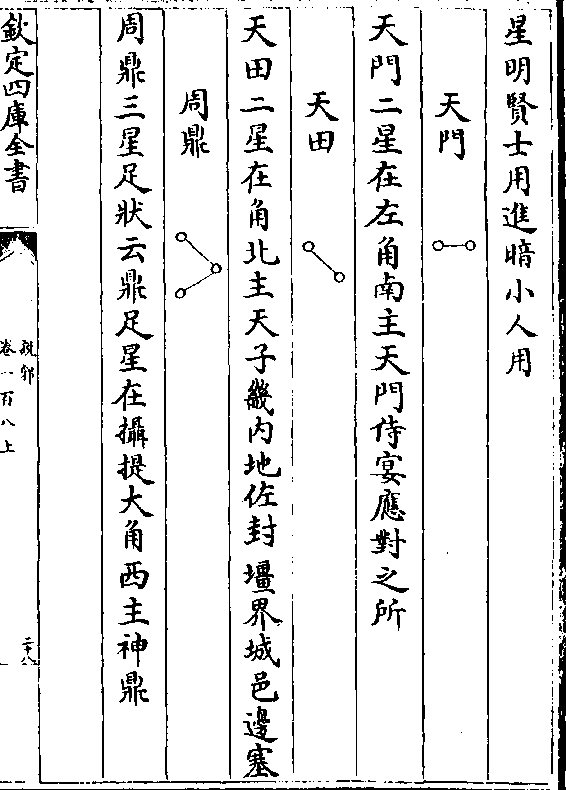 星明賢士用進暗小人用
天門
天門二星在左角南主天門侍宴應對之所
天田
天田二星在角北主天子畿内地佐封壃界城邑邊塞
周鼎
周鼎三星足狀云鼎足星在攝提大角西主神鼎
欽定四庫全書
說郛
卷一百八上
二十八